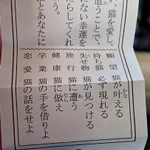 、猫を愛し、
追うことで、
ない幸運を
らしてくれ
とあなたに
願望 猫が叶える
待ち猫 必ず現れる
失せ物 猫が見つける
旅行 猫に遭う
健康 猫に倣え
学業 猫の手を借りよ
恋愛 猫の話をせよ